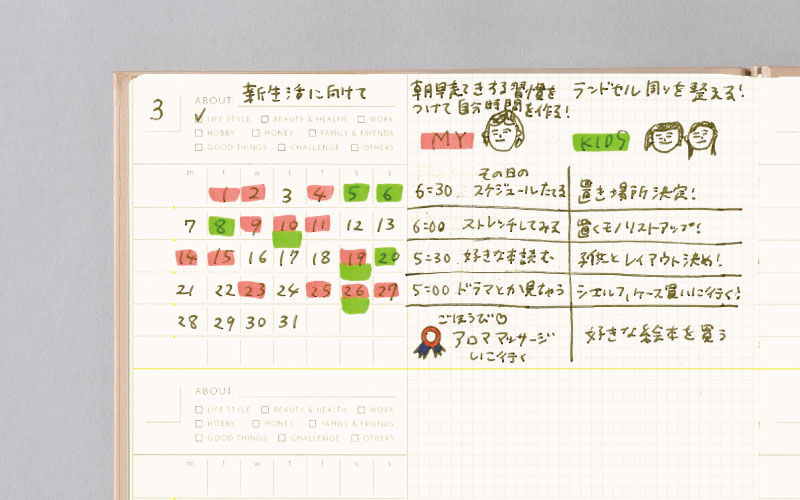 3
ABOUT: 新生活に向けて
✓ LIFE STYLE □ BEAUTY & HEALTH □ WORK
□ HOBBY □ MONEY □ FAMILY & FRIENDS
□ GOOD THINGS □ CHALLENGE □ OTHERS
m t w t f s s
1 2 3 4 5 6
7 8 9 10 11 12 13
14 15 16 17 18 19 20
21 22 23 24 25 26 27
28 29 30 31
朝早起きする習慣を
つけて自分時間を作る!
MY
6=30 その日の
スケジュールたてる
6=00 ストレッチしてみる
5=30 好きな本読む
5=00 ドラマとか見ちゃう
ごほうび♡
アロママッサージ
しに行く
ランドセル周りを整える!
KIDS
置き場所決定!
置くモノリストアップ!
子供とレイアウト決め!
シェルフ、ケース買いに行く!
好きな絵本を買う
ABOUT:
□ LIFE STYLE □ BEAUTY & HEALTH □ WORK
□ HOBBY □ MONEY □ FAMILY & FRIENDS
□ GOOD THINGS □ CHALLENGE □ OTHERS
m t w t f s s